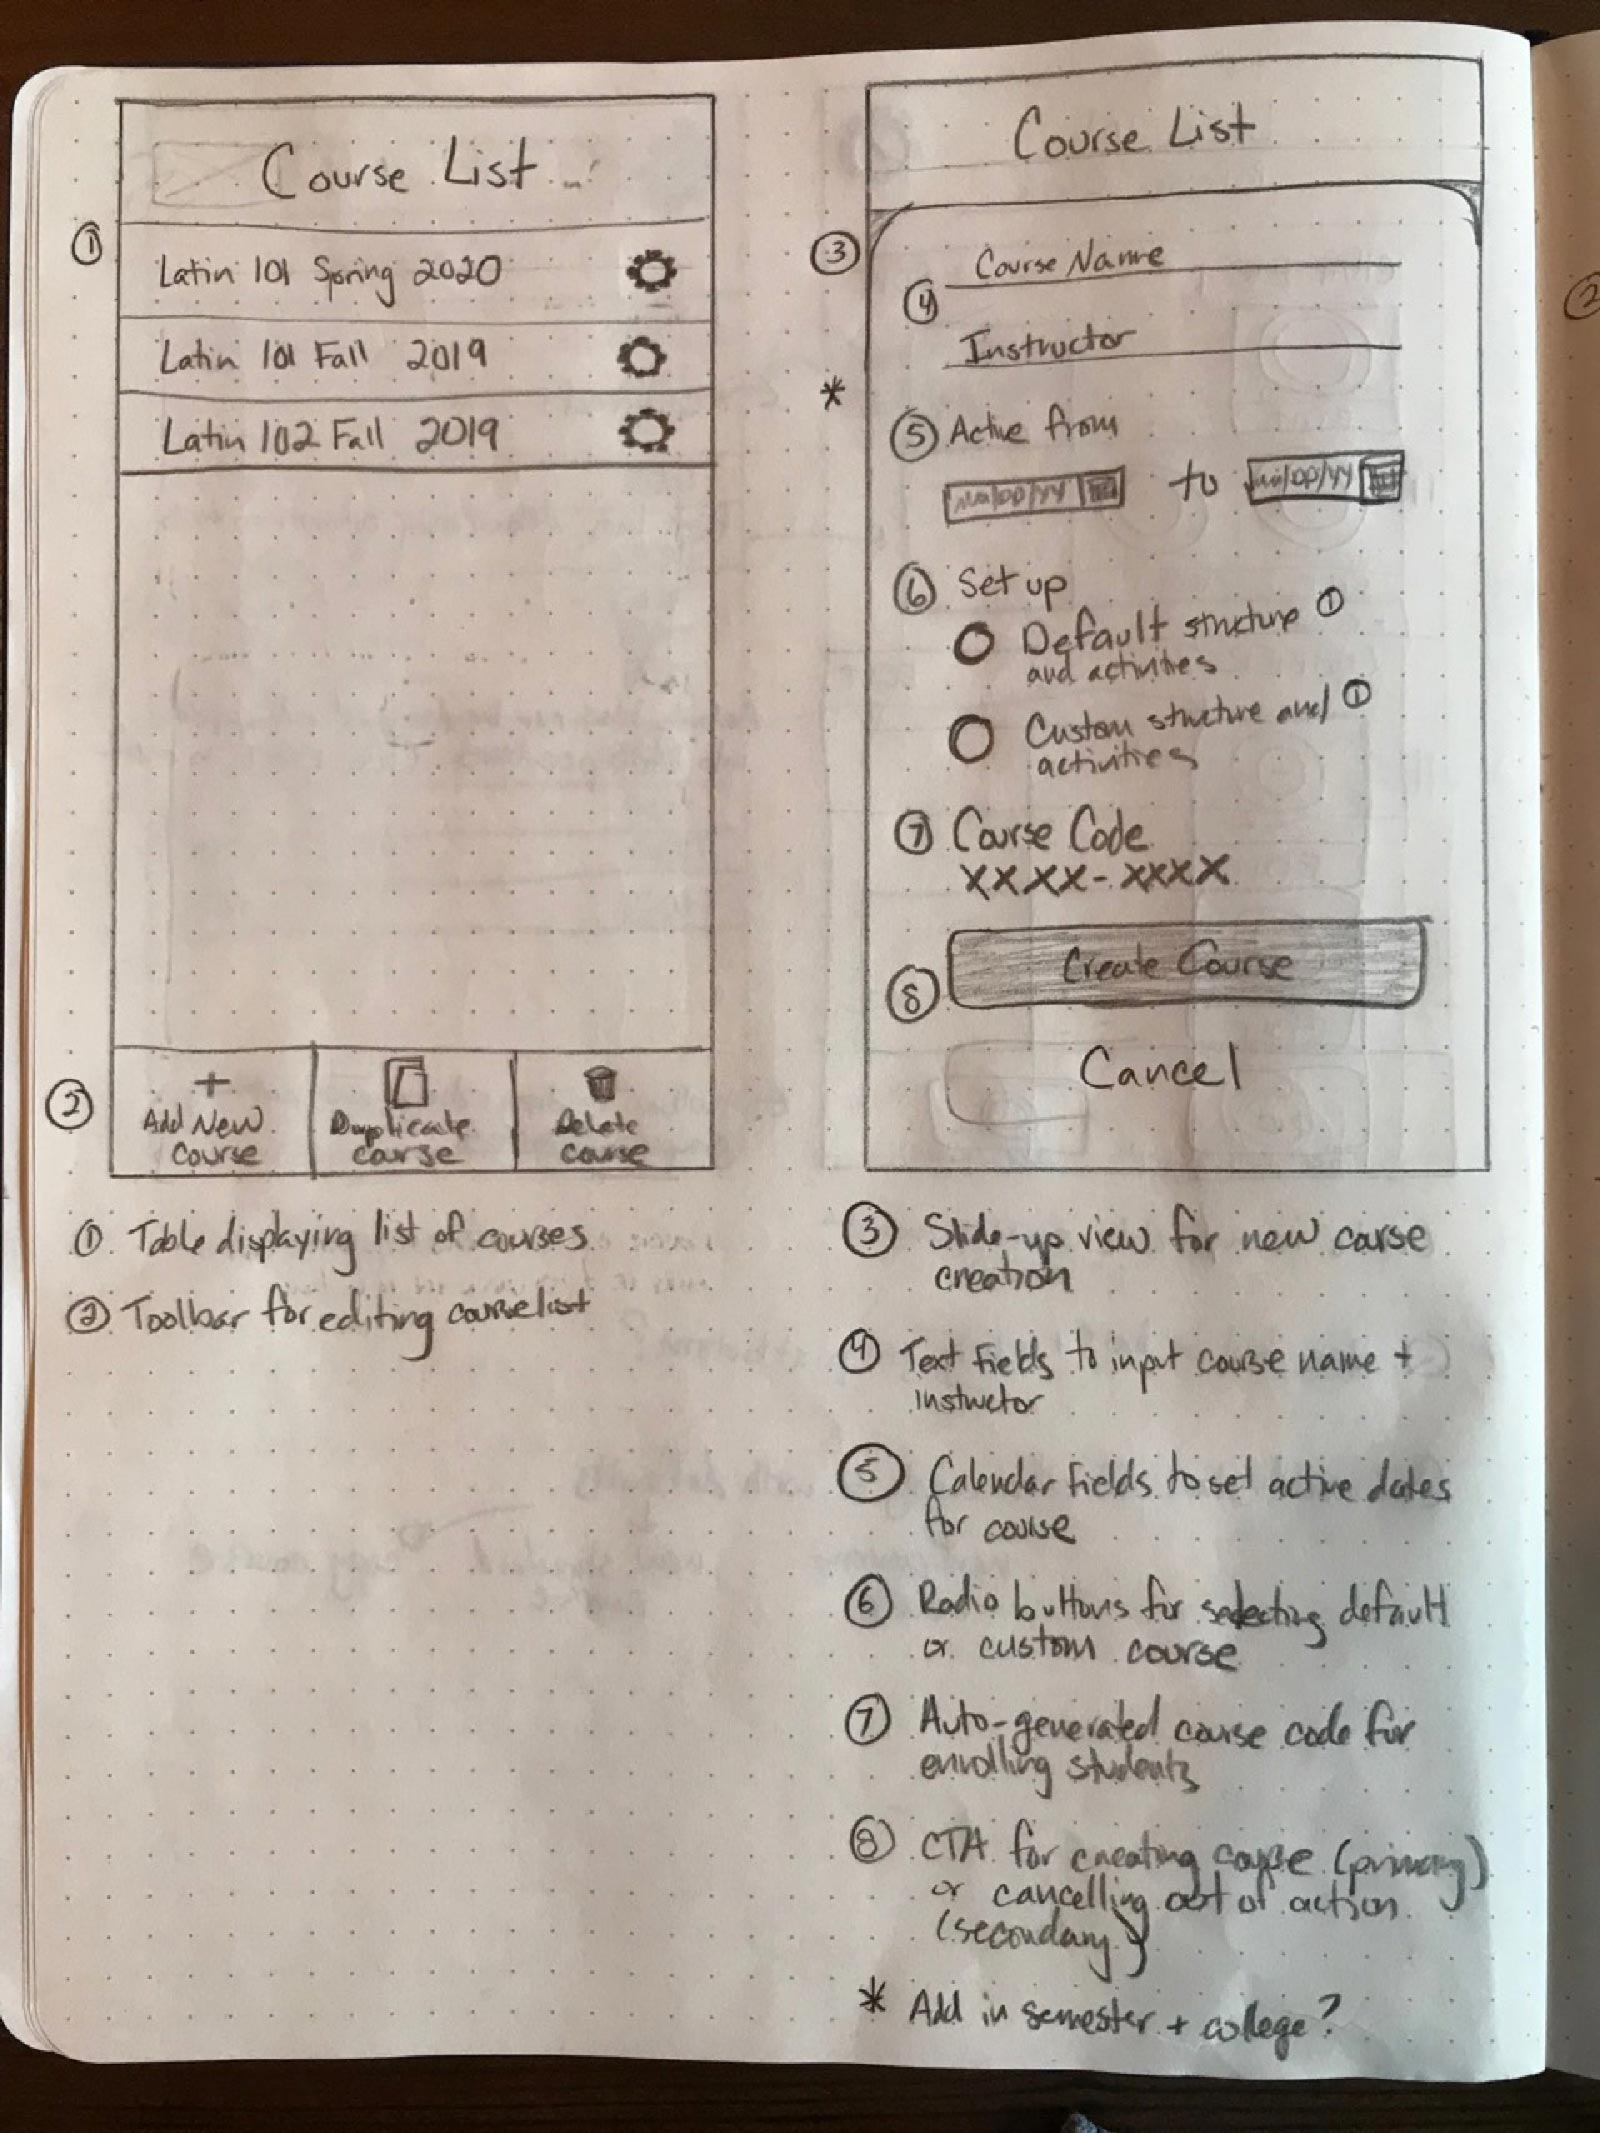 Course List
①
Latin 101 Spring 2020
Latin 101 Fall 2019
Latin 102 Fall 2019
②
+
Add New Course
Duplicate course
Delete course
① Table displaying list of courses
② Toolbar for editing course list
Course List
③
Course Name
④
Instructor
*
⑤ Active from
mm/DD/YY to mm/DD/YY
⑥ Set up
Default structure ⓘ
and activities
Custom structure and ⓘ
activities
⑦ Course Code
XXXX-XXXX
⑧ Create Course
Cancel
③ Slide-up view for new course
creation
④ Text fields to input course name +
instructor
⑤ Calendar fields to set active dates
for course
⑥ Radio buttons for selecting default
or custom course
⑦ Auto-generated course code for
enrolling students
⑧ CTA for creating course (primary)
or cancelling out of action
(secondary)
* Add in semester + college?
②